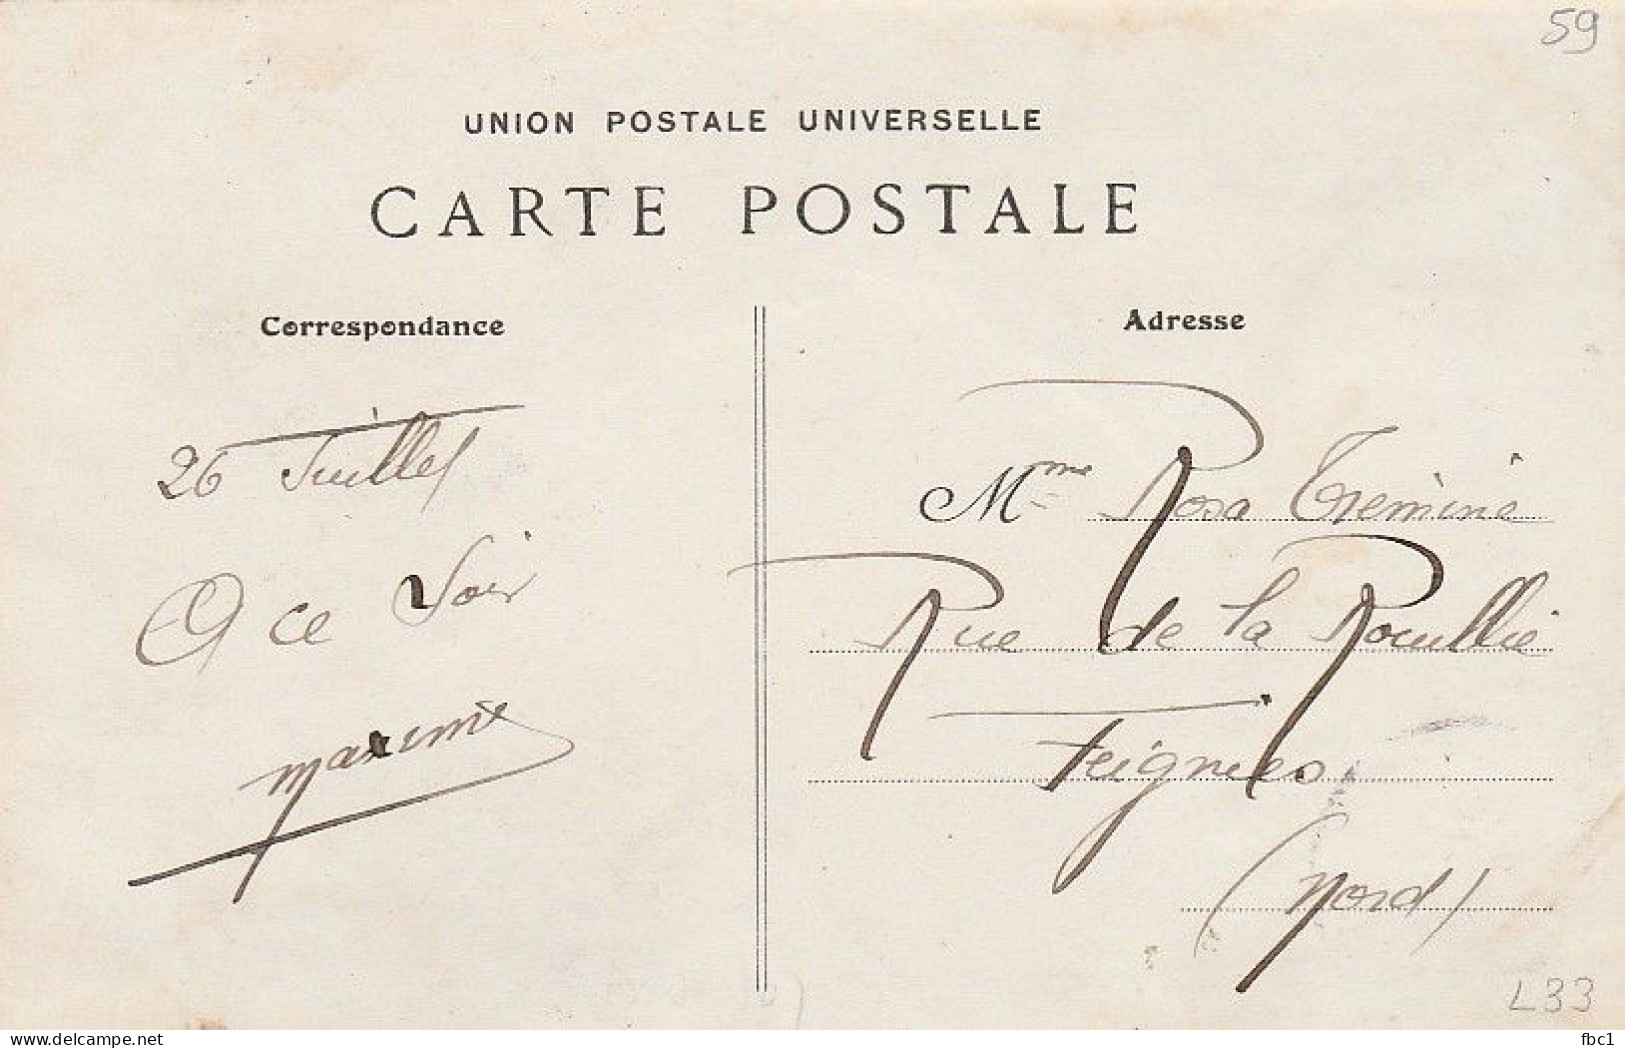 59
UNION POSTALE UNIVERSELLE
CARTE POSTALE
Correspondance
26 Juillet
A ce Soir
maxime
Adresse
Mme Rosa Trémine
Rue de la Rouillie
Feignies
(Nord)
L33
delcampe.net
fbc1